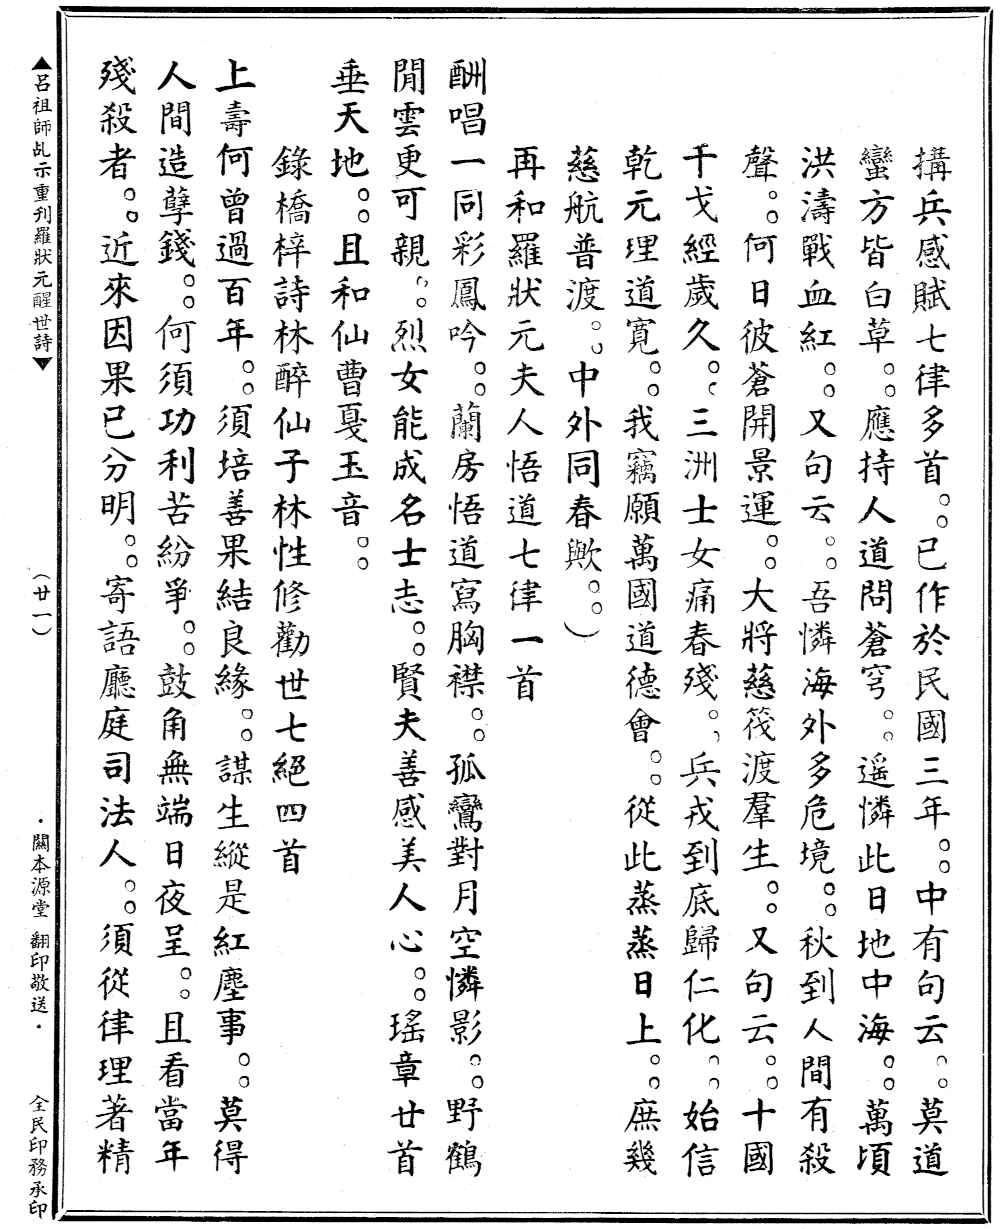 搆兵感賦七律多首。。已作於民國三年。。中有句云。。莫道
蠻方皆白草。。應持人道問蒼穹。。遥憐此日地中海。。萬頃
洪濤戰血紅。。又句云。。吾憐海外多危境。。秋到人間有殺
聲。。何日彼蒼開景運。。大將慈筏渡羣生。。又句云。。十國
干戈經歲久。。三洲士女痛春殘。。兵戎到底歸仁化。。始信
乾元理道寬。。我竊願萬國道德會。。從此蒸蒸日上。。庶幾
慈航普渡。。中外同春歟。。）
再和羅狀元夫人悟道七律一首
酬唱一同彩鳳吟。。蘭房悟道寫胸襟。。孤鸞對月空憐影。。野鶴
閒雲更可親。。烈女能成名士志。。賢夫善感美人心。。瑤章廿首
垂天地。。且和仙曹戛玉音。。
錄橋梓詩林醉仙子林性修勸世七絕四首
上壽何曾過百年。。須培善果結良緣。。謀生縱是紅塵事。。莫得
人間造孽錢。。何須功利苦紛爭。。鼓角無端日夜呈。。且看當年
殘殺者。。近來因果已分明。。寄語廳庭司法人。。須從律理著精
▲呂祖師乩示重刊羅狀元醒世詩▼
（廿一）
·關本源堂 翻印敬送·
全民印務承印